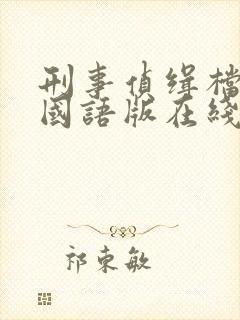 刑事偵緝檔
國語版在綫
祁東敏